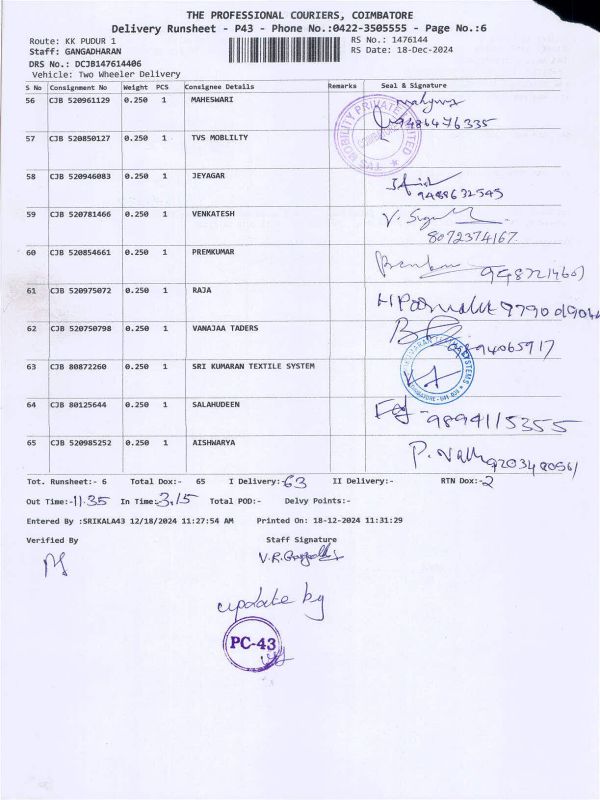 THE PROFESSIONAL COURIERS, COIMBATORE
Delivery Runsheet - P43 - Phone No.:0422-3505555 - Page No.:6
Route: KK PUDUR 1
RS No.: 1476144
Staff: GANGADHARAN
RS Date: 18-Dec-2024
DRS No.: DCJB147614406
Vehicle: Two Wheeler Delivery
S No Consignment No Weight PCS Consignee Details Remarks Seal & Signature
56 CJB 520961129 0.250 1 MAHESWARI
9486476335
57 CJB 520850127 0.250 1 TVS MOBLILTY
58 CJB 520946083 0.250 1 JEYAGAR
9488632545
59 CJB 520781466 0.250 1 VENKATESH
8072374167
60 CJB 520854661 0.250 1 PREMKUMAR
61 CJB 520975072 0.250 1 RAJA
62 CJB 520750798 0.250 1 VANAJAA TADERS
63 CJB 80872260 0.250 1 SRI KUMARAN TEXTILE SYSTEM
64 CJB 80125644 0.250 1 SALAHUDEEN
9894115355
65 CJB 520985252 0.250 1 AISHWARYA
Tot. Runsheet:- 6 Total Dox:- 65 I Delivery:- 63 II Delivery:- RTN Dox:- 2
Out Time:- 11.35 In Time:- 3.15 Total POD:- Delvy Points:-
Entered By :SRIKALA43 12/18/2024 11:27:54 AM Printed On: 18-12-2024 11:31:29
Verified By Staff Signature
update by
PC-43